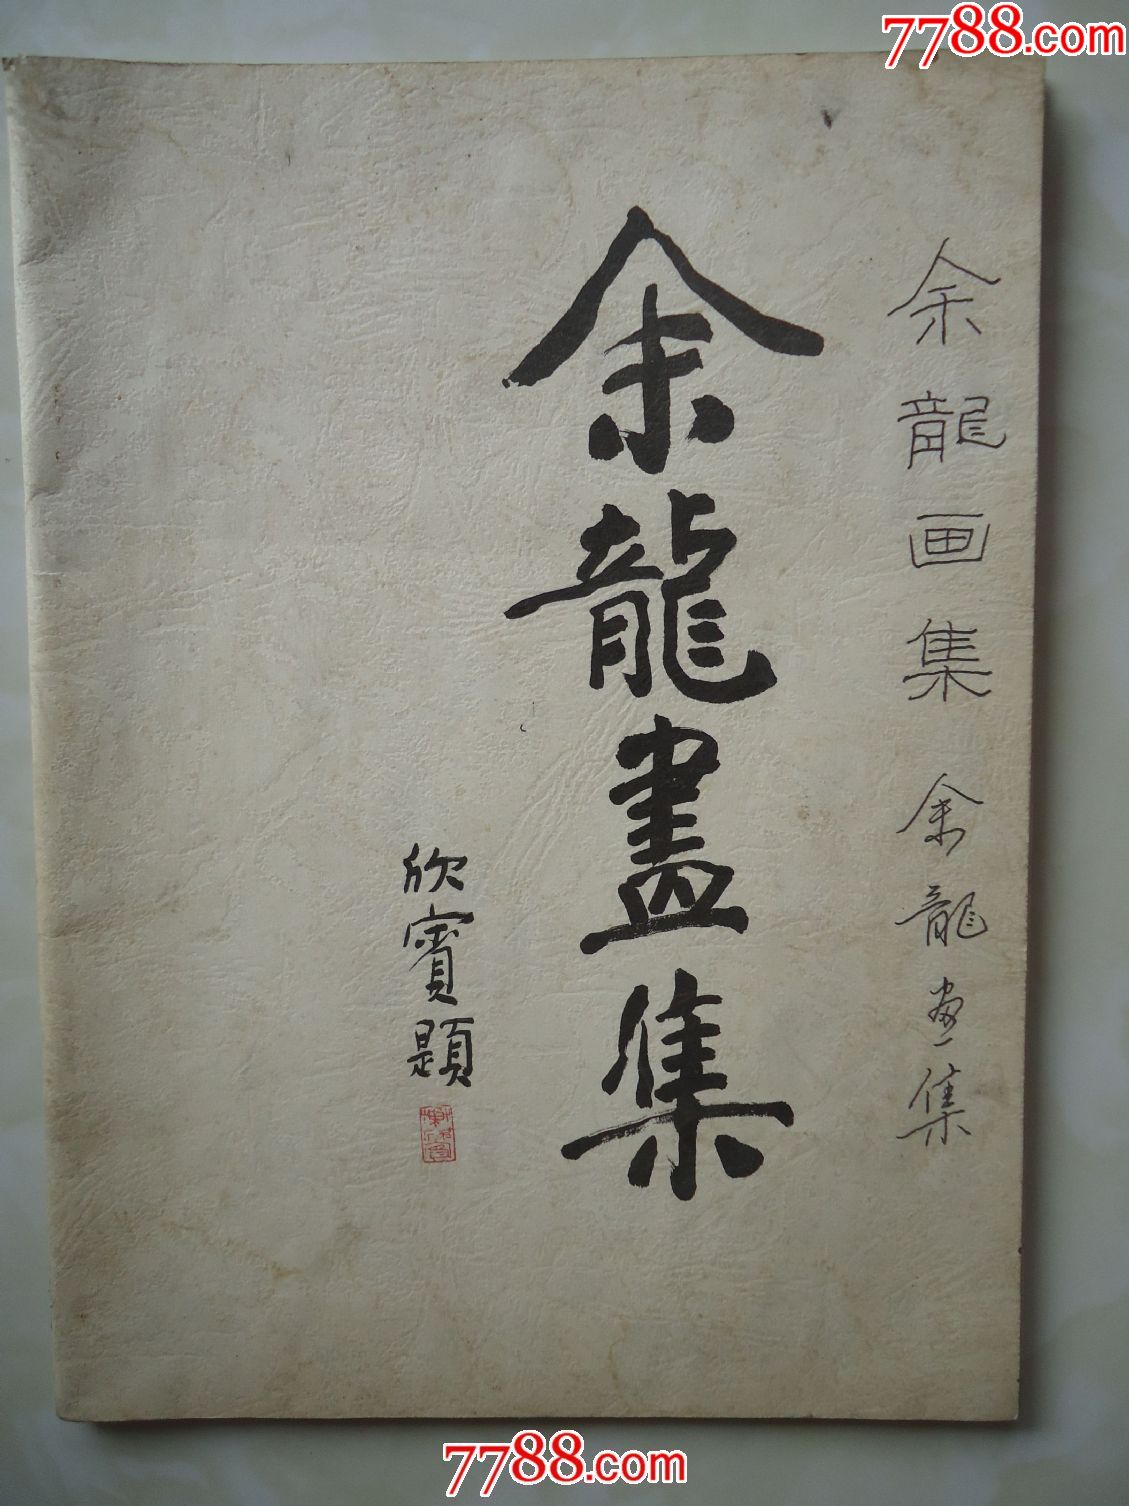 7788.com
余龍画集 余龍畫集
余龍畫集
欣賓題
7788.com